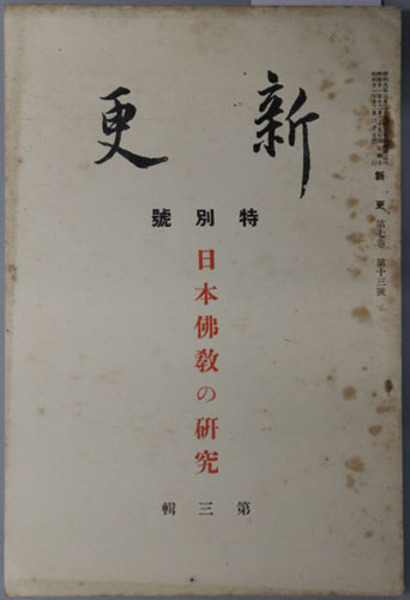 新更
特別號
日本佛敎の硏究
第三輯
新更 第七卷 第十三號